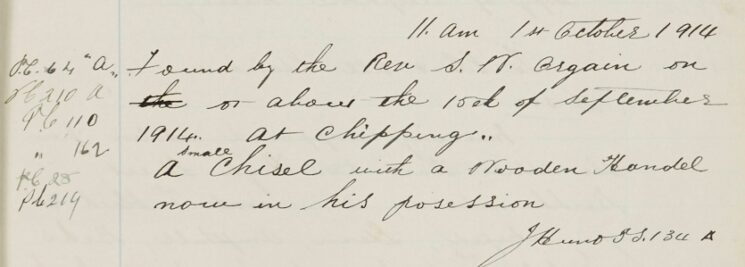 11. am 1st October 1914
P.C. 64 "A" Found by the Rev S. W. Orgain on
PC 210 A the or about the 10th of September
PC 110 1914. At Chipping..
" 162 A small Chisel with a Wooden Handel
PC 219 now in his posession
134 A